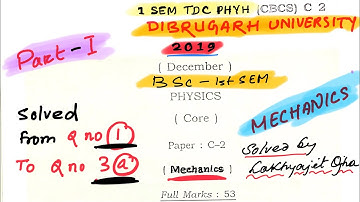 1 SEM TDC PHYH (CBCS) C 2
DIBRUGARH UNIVERSITY
2019
Part - I
( December )
BSc - 1st SEM
PHYSICS
( Core )
MECHANICS
Solved
from Q no 1
To Q no 3 a
Paper : C-2
( Mechanics )
Full Marks : 53
Solved by
Lakhyajet Ojha